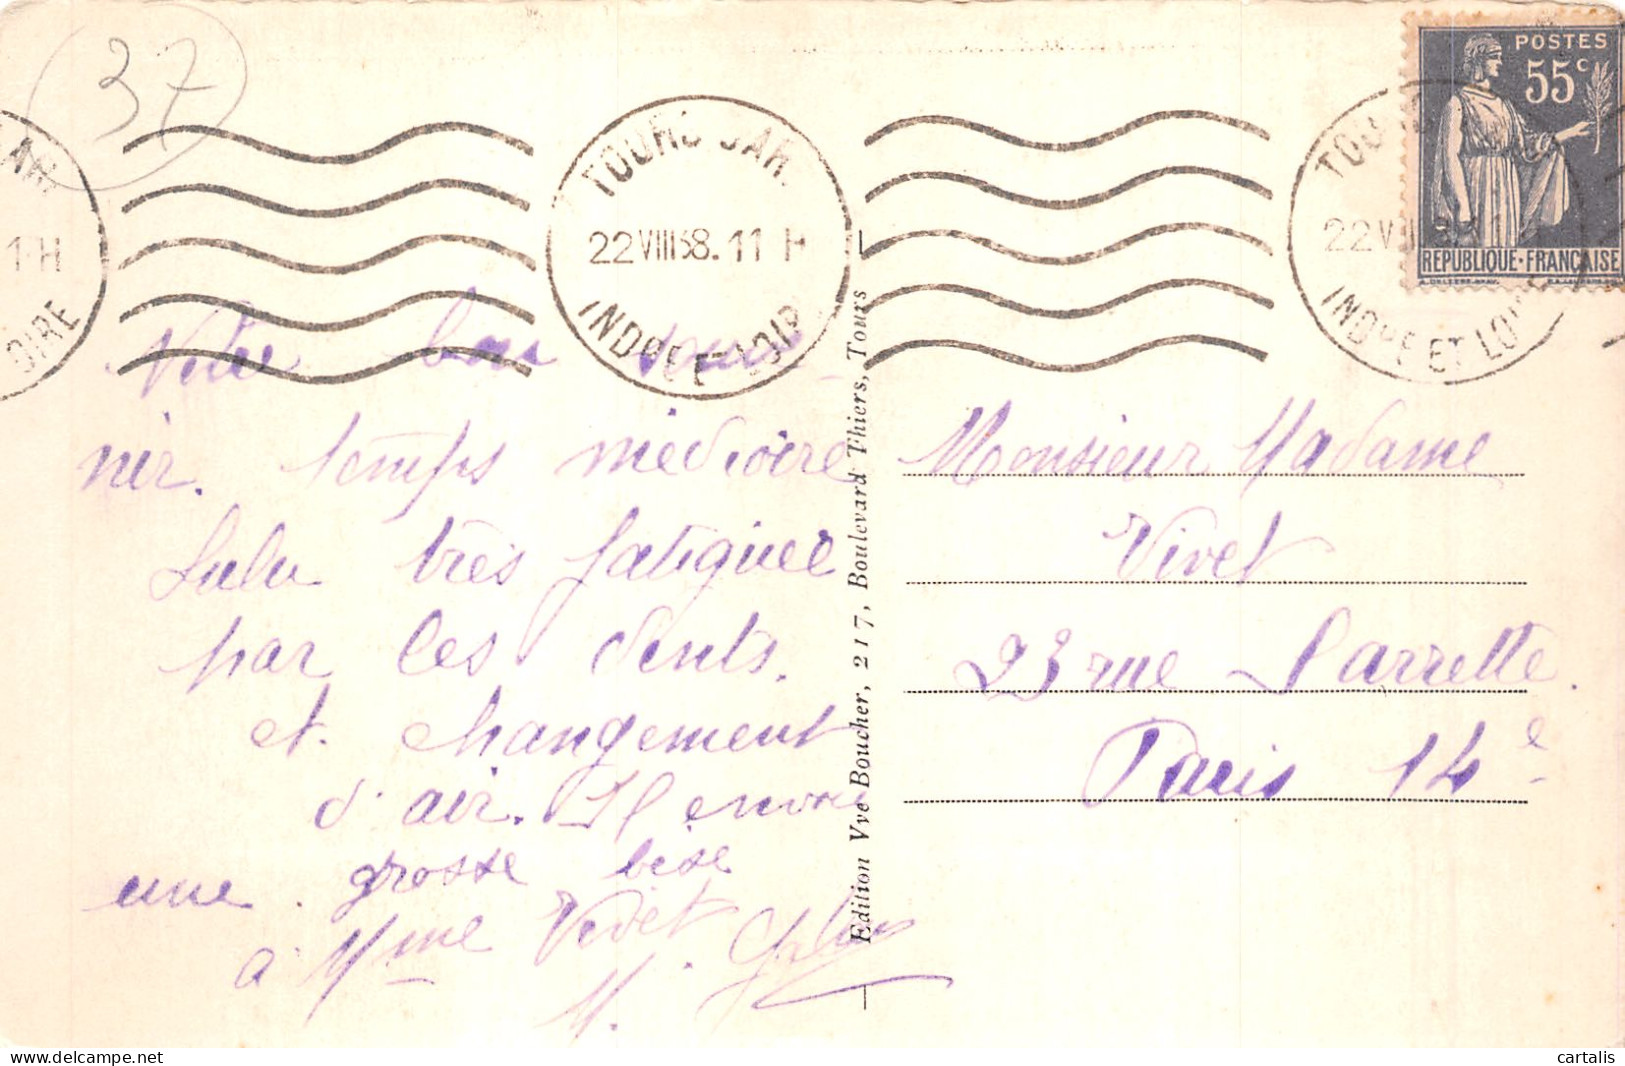 37
TOURS GAR.
22 VIII 38. 11 H
INDRE ET LOIRE
1 H
OIRE
POSTES
55c
REPUBLIQUE·FRANÇAISE
22 VIII
INDRE ET LOIRE
bon souve-
nir. temps mediocre
Lulu très fatiguee
par les dents.
et. changement
d'air. Il envoie
une. grosse bise
à Mme Vivet
M.
Edition Vve Boucher, 217, Boulevard Thiers, Tours
Monsieur Madame
Vivet
23 rue Sarrette.
Paris 14e
delcampe.net
cartalis